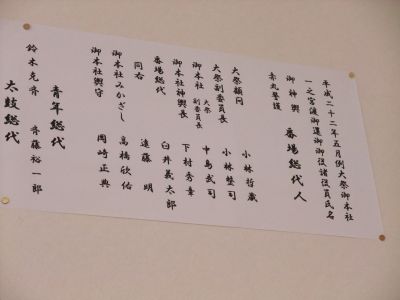 平成二十二年五月例大祭御本社
一之宮渡御還御御役諸役員氏名
御神輿 番場総代人
赤丸警護
大祭顧問 小林哲蔵
大祭副委員長 小林堅司
御本社 大祭副委員長 中島武司
御本社神輿長 下村秀幸
番場総代 臼井義太郎
同右 遠藤明
御本社みかざし 高橋欣佑
御本社輿守 岡崎正典
青年総代
鈴木克齊 齊藤裕一郎
太鼓総代